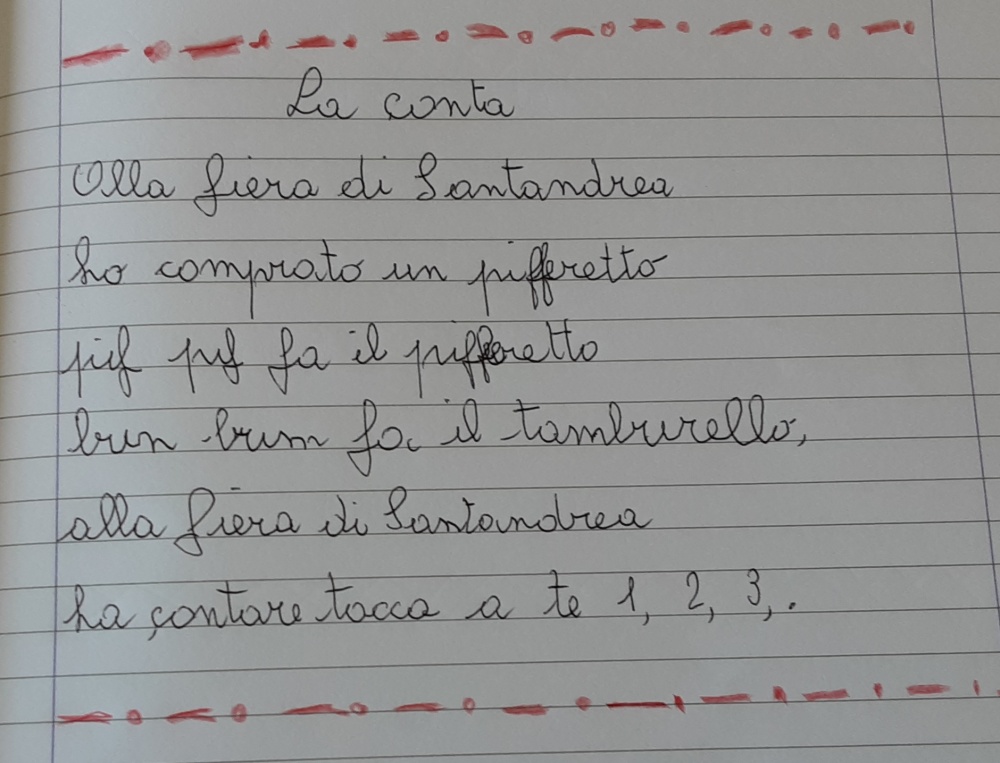 La conta
Alla fiera di Santandrea
ho comprato un pifferetto
pif puf fa il pifferetto
bun brum fa il tamburello,
alla fiera di Santandrea
ha contare tocca a te 1, 2, 3,.